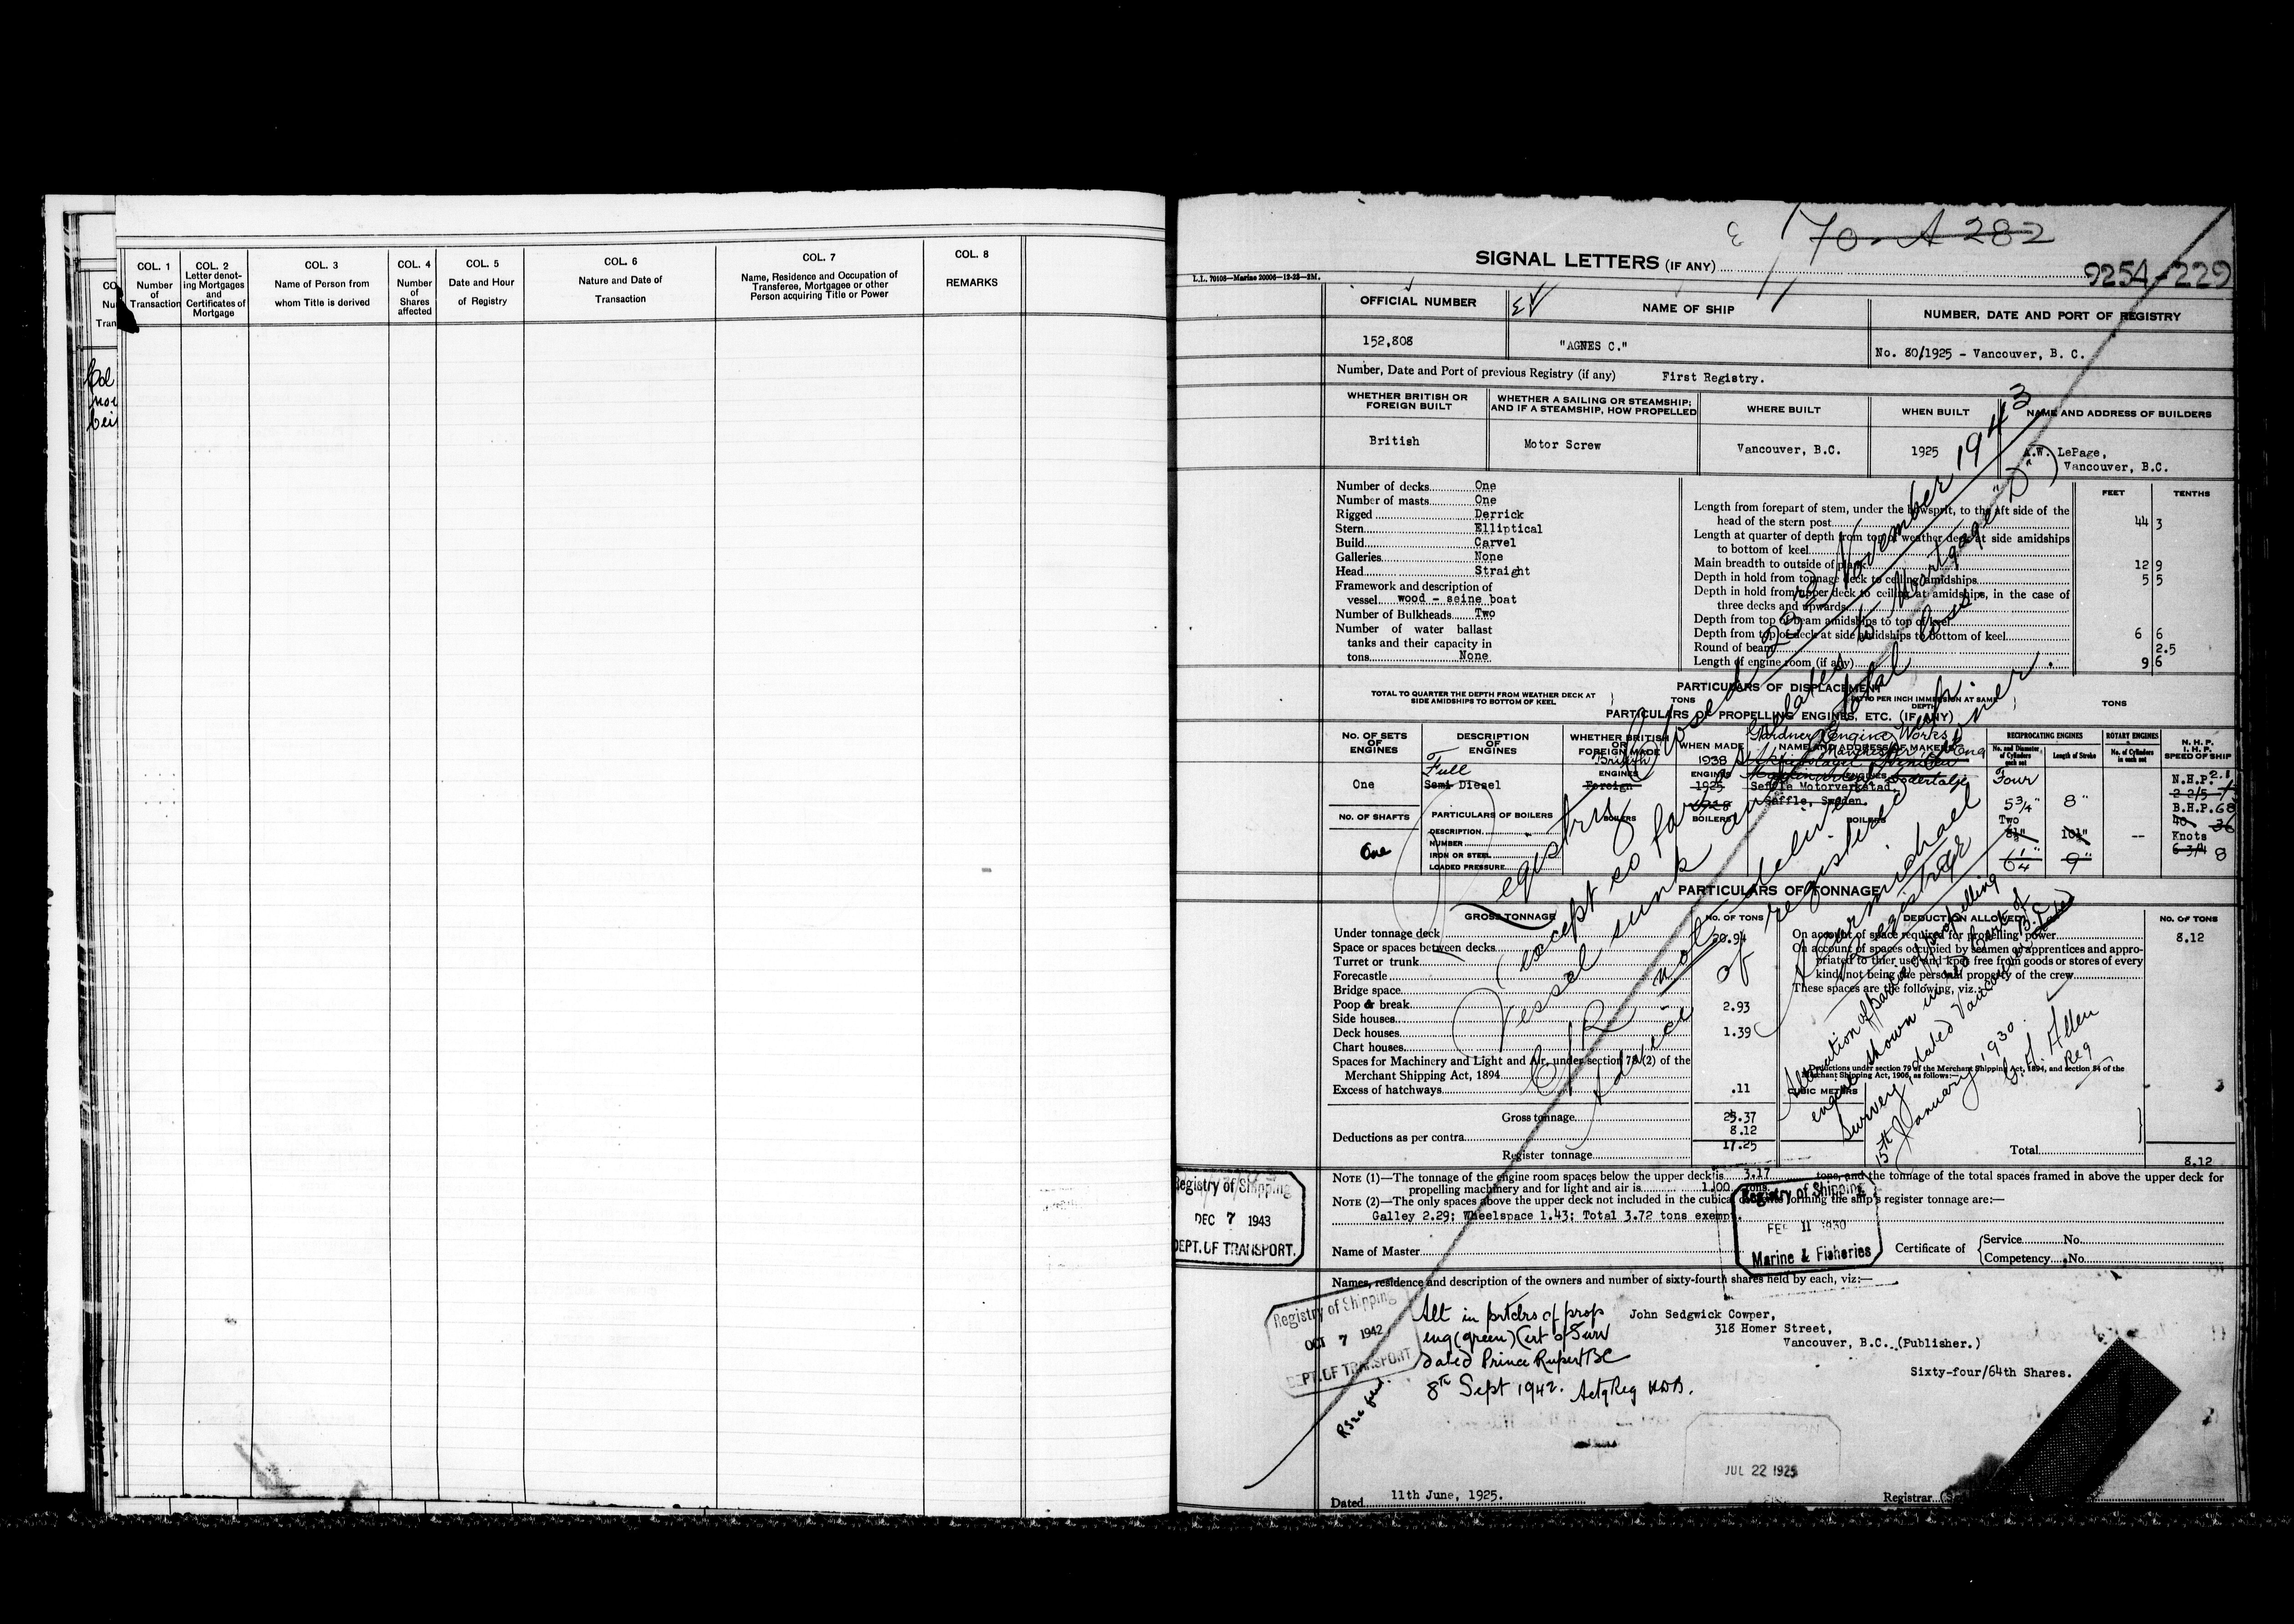 COL. 1
Number
of
Transaction
COL. 2
Letter denot-
ing Mortgages
and
Certificates of
Mortgage
COL. 3
Name of Person from
whom Title is derived
COL. 4
Number
of
Shares
affected
COL. 5
Date and Hour
of Registry
COL. 6
Nature and Date of
Transaction
COL. 7
Name, Residence and Occupation of
Transferee, Mortgagee or other
Person acquiring Title or Power
COL. 8
REMARKS
70-A 282
SIGNAL LETTERS (IF ANY)
9254-229
L.L. 70105—Marine 20006—12-23—2M.
OFFICIAL NUMBER
NAME OF SHIP
NUMBER, DATE AND PORT OF REGISTRY
152,808
"AGNES C."
No. 80/1925 - Vancouver, B. C.
Number, Date and Port of previous Registry (if any) First Registry.
WHETHER BRITISH OR
FOREIGN BUILT
WHETHER A SAILING OR STEAMSHIP;
AND IF A STEAMSHIP, HOW PROPELLED
WHERE BUILT
WHEN BUILT
NAME AND ADDRESS OF BUILDERS
British
Motor Screw
Vancouver, B.C.
1925
A.W. LePage,
Vancouver, B.C.
Number of decks One
Number of masts One
Rigged Derrick
Stern Elliptical
Build Carvel
Galleries None
Head Straight
Framework and description of
vessel wood - seine boat
Number of Bulkheads Two
Number of water ballast
tanks and their capacity in
tons None
FEET TENTHS
Length from forepart of stem, under the bowsprit, to the aft side of the
head of the stern post 44 3
Length at quarter of depth from top of weather deck at side amidships
to bottom of keel
Main breadth to outside of plank 12 9
Depth in hold from tonnage deck to ceiling amidships 5 5
Depth in hold from upper deck to ceiling at amidships, in the case of
three decks and upwards
Depth from top of beam amidships to top of keel
Depth from top of deck at side amidships to bottom of keel 6 6
Round of beam 2.5
Length of engine room (if any) 9 6
PARTICULARS OF DISPLACEMENT
TOTAL TO QUARTER THE DEPTH FROM WEATHER DECK AT
SIDE AMIDSHIPS TO BOTTOM OF KEEL
TONS
DITTO PER INCH IMMERSION AT SAME
DEPTH
TONS
PARTICULARS OF PROPELLING ENGINES, ETC. (IF ANY)
NO. OF SETS
OF
ENGINES
DESCRIPTION
OF
ENGINES
WHETHER BRITISH
OR
FOREIGN MADE
WHEN MADE
NAME AND ADDRESS OF MAKERS
RECIPROCATING ENGINES
No. and Diameter
of Cylinders
each set
Length of Stroke
ROTARY ENGINES
No. of Cylinders
in each set
N.H.P.
I.H.P.
SPEED OF SHIP
Gardner Engine Works
Manchester Eng
One
Full
Semi Diesel
British
ENGINES
Foreign
1938
ENGINES
1925
1928
Södertalje
Seffle Motorverkstad,
Seffle, Sweden.
Four
5 3/4"
Two
8½"
6 1/4"
8"
10½"
9"
--
N.H.P. 2.1
2 2/5
B.H.P. 68
40 36
Knots
6 3/4 8
NO. OF SHAFTS
One
PARTICULARS OF BOILERS
DESCRIPTION
NUMBER
IRON OR STEEL
LOADED PRESSURE
BOILERS
BOILERS
BOILERS
PARTICULARS OF TONNAGE
GROSS TONNAGE
NO. OF TONS
DEDUCTION ALLOWED
NO. OF TONS
Under tonnage deck 20.94
Space or spaces between decks
Turret or trunk
Forecastle
Bridge space
Poop & break 2.93
Side houses
Deck houses 1.39
Chart houses
Spaces for Machinery and Light and Air, under section 78 (2) of the
Merchant Shipping Act, 1894
Excess of hatchways .11
Gross tonnage 25.37
Deductions as per contra 8.12
Register tonnage 17.25
On account of space required for propelling power 8.12
On account of spaces occupied by seamen or apprentices and appro-
priated to thier use, and kept free from goods or stores of every
kind, not being the personal property of the crew
These spaces are the following, viz.:
Deductions under section 79 of the Merchant Shipping Act, 1894, and section 54 of the
Merchant Shipping Act, 1906, as follows:—
CUBIC METERS
Total 8.12
Registry Closed 23rd November 1943
(except so far as relates to Mortgage "D")
Vessel sunk and a total loss.
C/R not delivered up.
Advice of registered owner.
Carmichael
Registrar
Alteration of partics of propelling
engine shown in red. Cert of
Survey, dated Vancouver B.C.
15th January 1930.
G.H. Allen
Reg
NOTE (1)—The tonnage of the engine room spaces below the upper deck is 3.17 tons, and the tonnage of the total spaces framed in above the upper deck for
propelling machinery and for light and air is 1.00 tons.
NOTE (2)—The only spaces above the upper deck not included in the cubical contents forming the ship's register tonnage are:—
Galley 2.29; Wheelspace 1.43; Total 3.72 tons exempt.
Registry of Shipping
DEC 7 1943
DEPT. OF TRANSPORT.
Registry of Shipping
FEB 11 1930
Marine & Fisheries
Name of Master
Certificate of
Service No.
Competency No.
Names, residence and description of the owners and number of sixty-fourth shares held by each, viz:—
Registry of Shipping
OCT 7 1942
DEPT. OF TRANSPORT
Alt in prtclrs of prop
eng (green) Cert of Surv
dated Prince Rupert BC
8th Sept 1942. Actg Reg
John Sedgwick Cowper,
318 Homer Street,
Vancouver, B.C. (Publisher.)
Sixty-four/64th Shares.
JUL 22 1925
Dated 11th June, 1925.
Registrar